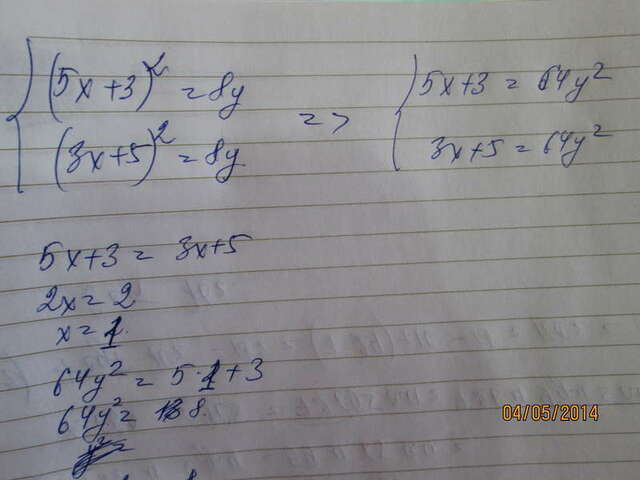 (5x+3)² = 8y => 5x+3 = 64y²
(3x+5)² = 8y 3x+5 = 64y²
5x+3 = 3x+5
2x = 2
x = 1.
64y² = 5·1+3
64y² = 8.
04/05/2014